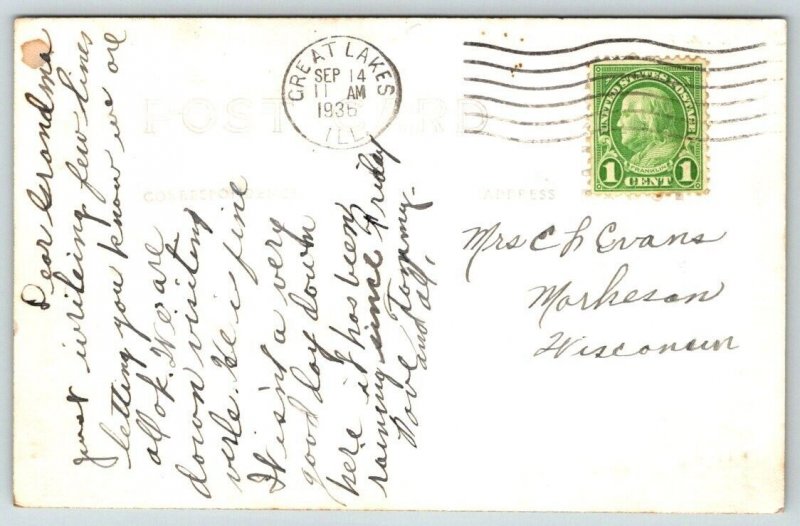 Dear Grandma
just writeing few lines
letting you know we are
all ok. We are
down visiting
verle. He is fine
It isn't a very
good day down
here it has been
raining since Friday
Love, Tommy.
and all,
GREAT LAKES
SEP 14
11 AM
1936
ILL.
POST CARD
CORRESPONDENCE
ADDRESS
UNITED STATES POSTAGE
FRANKLIN
1 CENT 1
Mrs C L Evans
Markesan
Wisconsin